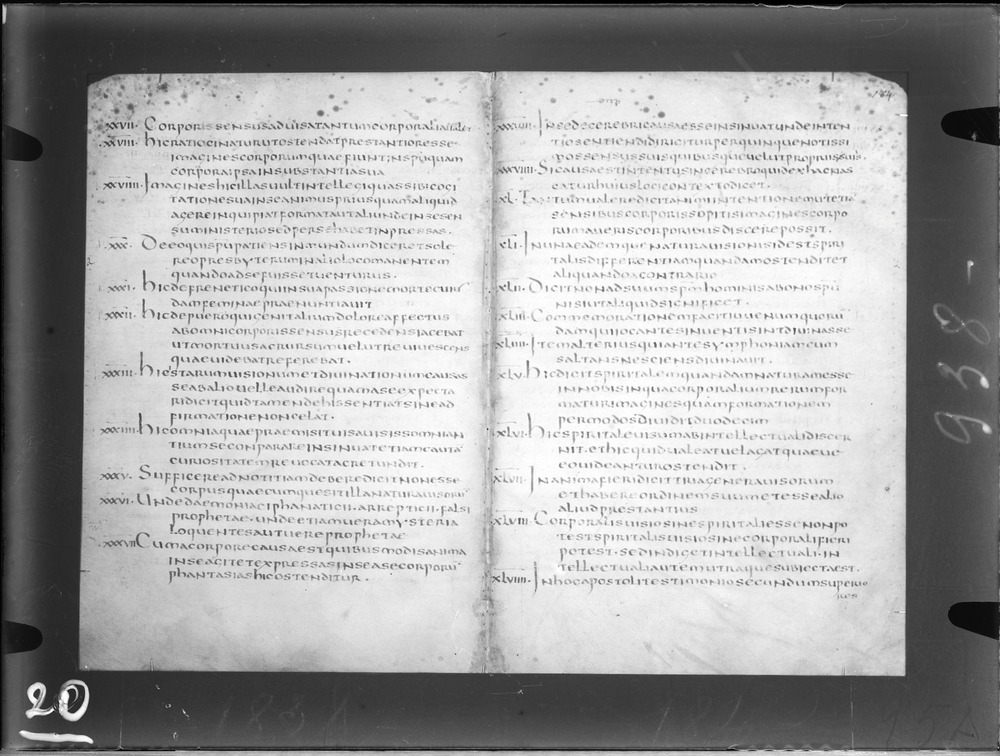 xxvii· Corporis sensus ad uisa tantum corporalia ualet
xxviii· hic ratiocinatur ut ostendat prestantiores se
imagines corporum quae fiunt in spu quam
corpora ipsa in substantia sua
xxviiii· Imagines hic illas uult intellegi quas sibi cogi
tationes uainse animus prius quam aliquid
agere inquipiat format aut aliunde in se sen
su ministerio sed per se habet inpressas·
xxx· De eo qui spu patiens inmundum diceret sole
re o presbyterum in alio loco manentem
quando ad se fuisset uenturus·
xxxi· hic de frenetico qui in sua passione morte cuius
dam feminae praenuntiauit
xxxii· hic de puero qui genitalium dolore affectus
ab omni corporis sensus recedens iacebat
ut mortuus ac rursum uelut reuiuescens
quae uidebat referebat·
xxxiii· hic harum uisionum et diuinationum causas
se ab alio uelle audire quam a se expecta
ri dicit quid tamen de his sentiat sine ad
firmatione non celat·
xxxiiii· hic omnia quae praemisit uisa uisis somnian
tium se conparare insinuat etiam cauta
curiositatem reuocata cretundit·
xxxv· Sufficere ad notitiam de bere dicit non esse
corpus quaecumque sit illa natura uisorum
xxxvi· Unde daemoniaci phanatici· arreptici· falsi
prophetae· unde etiam uera mysteria
loquentes aut uere prophetae
xxxvii Cum a corpore causa est quibus modis anima
in se agitet expressas in sea se corporum
phantasias hic ostenditur·
xxxviii· In sede cerebri causa esse insinuat unde inten
tio sentiendi dirigitur per quinque notissi
mos sensus suis quibusque uelut propriis uiis·
xxxviiii· Si causa est intentus in cerebro quid ex hac nas
catur huius loci contextio dicet·
xl· Tactum uale dicit animi intentionem ut etiam
sensibus corporis sopitis imagines corpo
rum a ueris corporibus discere possit·
xli· In una eademque natura uisionis id est spiri
talis differentiam quandam ostendit et
aliquando a contrario
xlii· Dicit non ad suum spm hominis a bono spu
nisi ut aliquid significet·
xliii· Commemorationem facit iuuenum quorum
dam qui iocantes inuenti sint diuinasse
xliiii· Item alterius qui ante symphoniam cum
saltans nesciens diuinauit·
xlv· hic dicit spiritalem quandam naturam esse
in nobis in qua corporalium rerum for
matur imagines quam formationem
per modos diuidit duodecim
xlvi· hic spiritale uisum ab intellectuali discer
nit· et hic quid ualeat uel agat quae ue
eo uideantur ostendit·
xlvii· In anima fieri dicit tria genera uisorum
et habere ordinem suum et esse alio
aliud prestantius
xlviii· Corporalis uisio sine spiritali esse non po
test spiritalis uisio sine corporali fieri
potest· sed indiget intellectuali· in
tellectuali autem utraque subiecta est·
xlviiii· In hoc apostoli testimonio secundum superio
res
938-
20